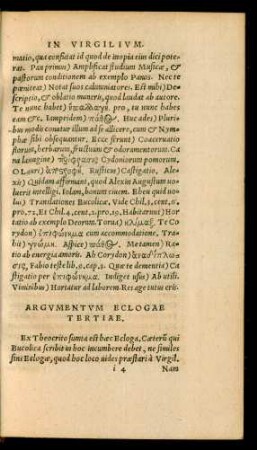 IN VIRGILIVM.
mutio, qua confutat id quod de inopia eius dici pote-
rat. Pan primus) Amplificat studium Musicæ, &
pastorum conditionem ab exemplo Panos. Nec te
pœniteat) Notat suos calumniatores. Est mihi) De-
scriptio, & oblatio munera, quod laudat ab autore.
Te nunc habet) ὑπαλλαγὴ. pro, tu nunc habes
eam &c. Iampridem) πάθος. Huc ades) Pluri-
bus modis conatur illum ad se allicere, cum & Nym-
phæ sibi obsequantur. Ecce ferunt) Coacervatio
florum, herbarum, fructuum & odoramentorum. Ca-
na lanugine) Cydoniorum pomorum,
O Lauri) Rusticus) Castigatio, Alex-
Quidam affirmant, quod Alexin Augustum vo-
luerit intelligi. Islam, bonum uirum. Eheu quid uo-
lui) Translationes Bucolicæ. Vide Chil. 1. cent. 2.
pro. 72. Et Chil. 2. cent. 2. pro. 19. Habitarunt) Hor-
tatio ab exemplo Deorum. Torua) κλίμαξ. Te Co-
rydon) ἐπιφώνημα cum accommodatione. Tra-
hit) γνώμη. Aspice) πάθος. Metamen) Ra-
tio ab energia amoris. Ah Corydon)
Fabio teste lib. 9. cap. 3. Quæ te dementia) Ca-
stigatio per ἐπιφώνημα. Indiget usus) Ab utili.
Viminibus) Hortatur ad laborem. Res age tutus eris.
ARGVMENTVM ECLOGAE
TERTIAE.
Ex Theocrito sumta est hæc Ecloga. Cæterū qui
Bucolica scribit in hoc incumbere debet, ne similes
sint Eclogæ, quod hoc loco uides præstari à Virgil.
i 4 Nam